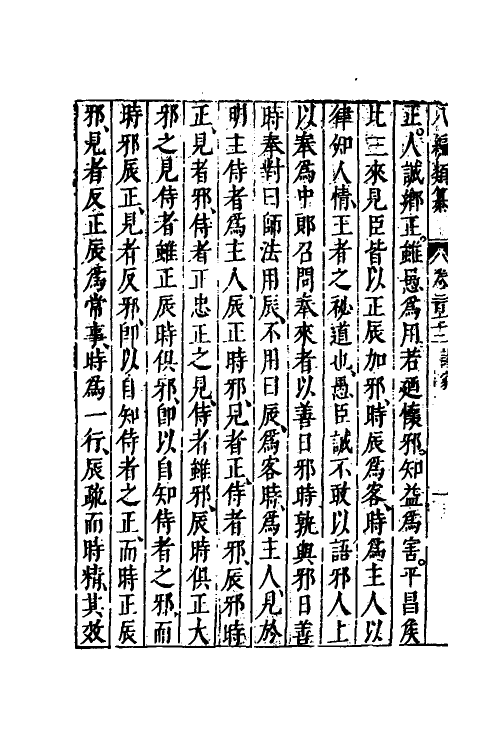 八編類纂
正。人誠鄉正。雖愚爲用。若廼懷邪。知益爲害。平昌矦
比三來見臣皆以正辰加邪、時辰爲客、時爲主人以
律知人情、王者之秘道也、愚臣誠不敢以語邪人上
以奉爲中郞召問奉來者以善日邪時孰與邪日善
時奉對曰師法用辰、不用日辰、爲客時、爲主人、見於
明主侍者爲主人、辰正時邪、見者正、侍者邪、辰邪時
正、見者邪、侍者正忠正之見、侍者雖邪、辰時俱正大
邪之見侍者雖正辰時俱邪、卽以自知侍者之邪、而
時邪辰正、見者反邪、卽以自知侍者之正、而時正辰
邪、見者反正辰爲常事、時爲一行、辰疏而時精、其效